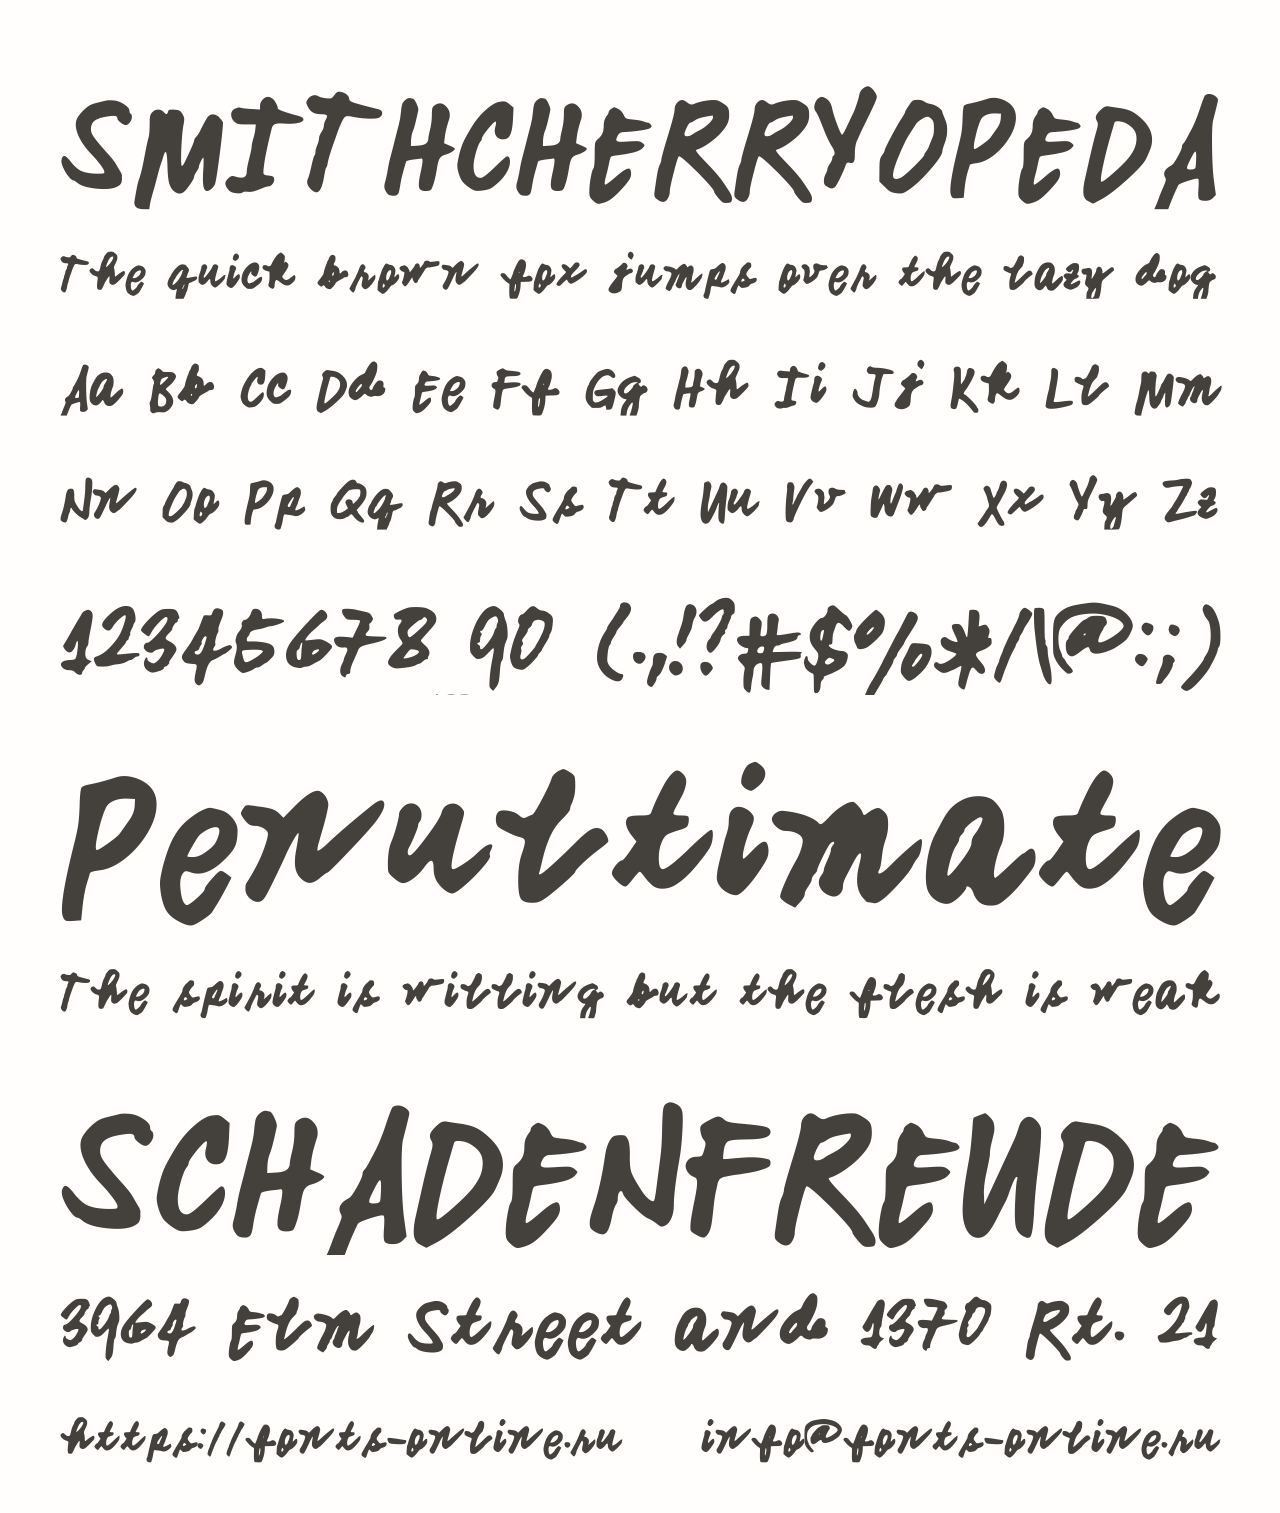 SMITHCHERRYOPEDA
The quick brown fox jumps over the lazy dog
Aa Bb Cc Dd Ee Ff Gg Hh Ii Jj Kk Ll Mm
Nn Oo Pp Qq Rr Ss Tt Uu Vv Ww Xx Yy Zz
12345678 90 (.,!?#$%*/\@:;)
Penultimate
The spirit is willing but the flesh is weak
SCHADENFREUDE
3964 Elm Street and 1370 Rt. 21
https://fonts-online.ru info@fonts-online.ru